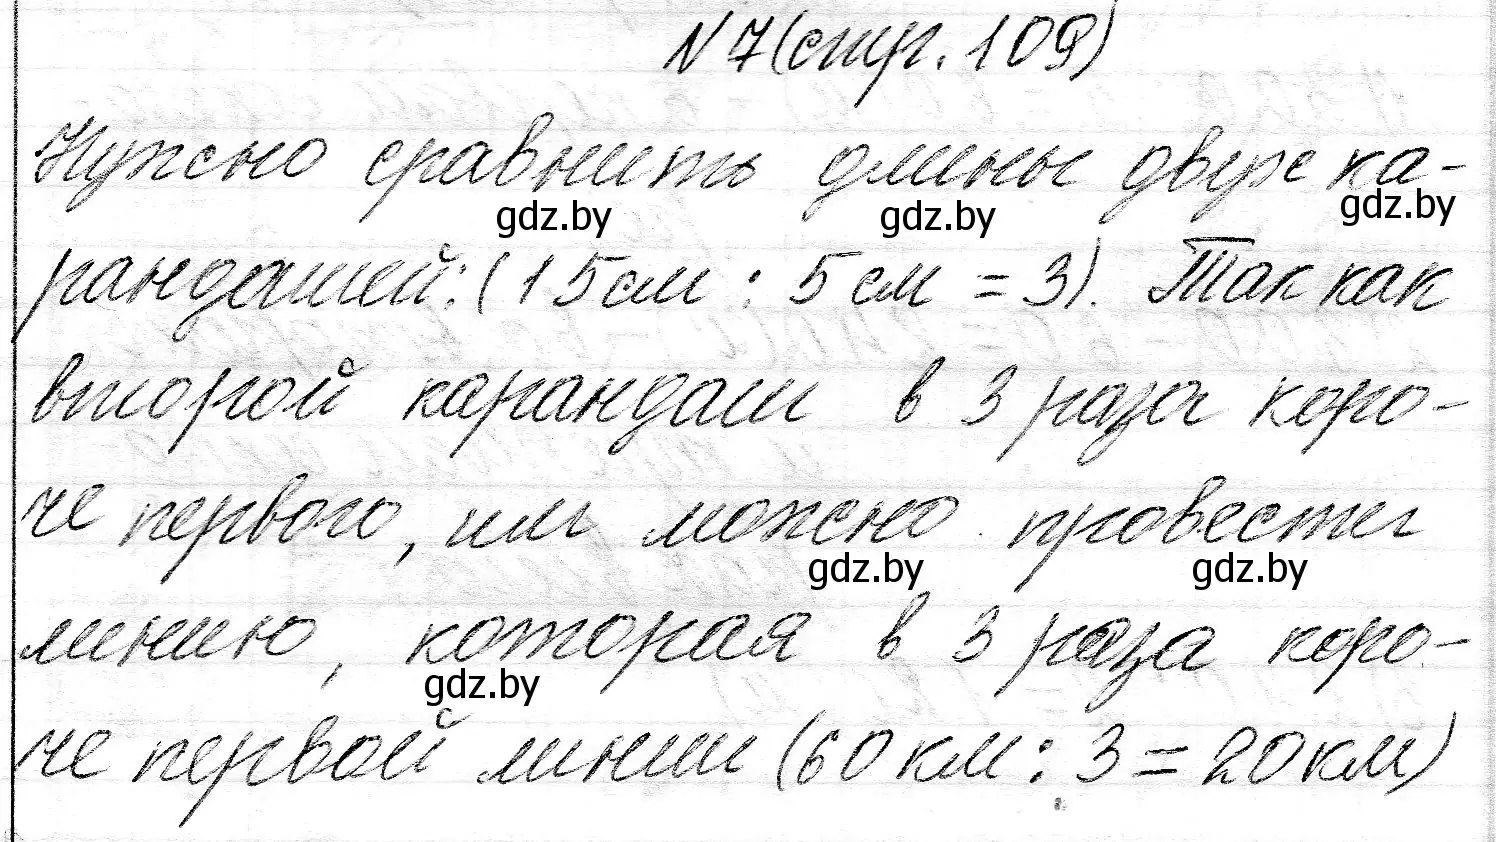 N7(стр. 109)
Нужно сравнить длины двух ка-
gdz.by gdz.by gdz.by
рандашей: (15см : 5см = 3). Так как
второй карандаш в 3 раза коро-
че первого, им можно провести
gdz.by gdz.by
линию, которая в 3 раза коро-
gdz.by
че первой линии (60км : 3 = 20км)